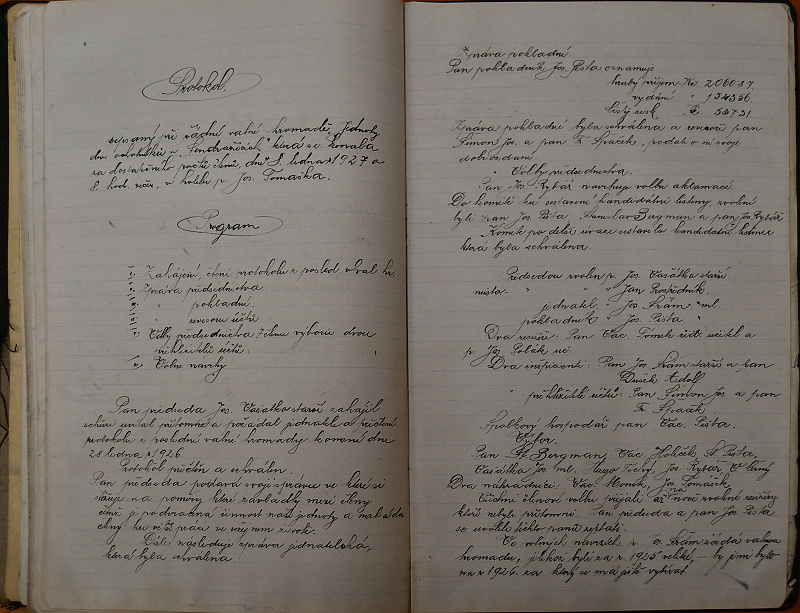 Protokol.
sepsaný při řádné valné hromadě "Jednoty
div. ochotníků v
za dostatečného počtu členů, dne 8. ledna r 1927 o
8. hod. več., v hotelu p. Jos. Tomáška.
Program
Zahájení, čtení protokolu z posled. val. hr.
Zpráva předsednictva
" pokladní.
" revisorů účtů
Volby předsednictva 7 členů výboru dvou
přehlížitelů účtů.
Volné návrhy
Pan předseda Jos. Časátka starší zahájil
schůzi uvítal přítomné a požádal jednatele o přečtení
protokolu z poslední valné hromady konané dne
28 ledna r 1926.
Protokol přečtén a schválen.
Pan předseda podává svoji zprávu ve které si
stěžuje na poměry, které zavládly mezi členy
činnost naší jednoty a
členy ku větší práci ve
Dále následuje zpráva jednatelská,
která byla schválena.
Zpráva pokladní.
Pan pokladník Jos. Pešta oznamuje
hrubý příjem Kč 2060 87.
vydání " 1543 56.
čistý zisk Kč 537 31.
Zpráva pokladní byla schválena a revisoři pan
Šimon Jos. a pan Fr. Špaček, podali o ní svoje
dobrozdání
Volby předsednictva.
Pan Jos. Rybář navrhuje volbu aklamací.
Do komité ku sestavení kandidátní listiny, zvoleni
byli pan Jos. Pešta, Stanislav Bergman a pan Jos. Rybář
Komité po delší úvaze sestavilo kandidátní listinu
která byla schválena.
Předsedou zvolen p. Jos. Časátka starší.
místo- " " " Jan Prostředník.
jednatel " Jos. Šrám " ml.
pokladník " Jos. Pešta. "
Dva revisoři: Pan Vác. Tomek řídící učitel a
p. Jos. Polák uč.
Dva inspicienti: Pan Jos. Šrám starší a pan
Dušek Adolf
" přehlížitelé účtů: Pan Šimon Jos. a pan
Fr. Špaček
Spolkový hospodář pan Vác. Pešta.
Výbor.
Pan St. Bergman, Vác. Holeček, A. Pešta,
Časátka Jos. ml. Hugo Tichý, Jos. Rybář, V. Černý
Dva náhradníci: Vác. Horák, Jos. Tomášek
Všichni členové volbu přijali až na nově zvolené revisory
kteří nebyli přítomni. Pan předseda a pan Jos. Pešta
se uvolili těchto pánů zeptati.
Ve volných návrzích, p. Šrám žádá valnou
hromadu, jelikož byli za r. 1925 by jimi bylo
na r 1926. za který se má ještě vybírat.